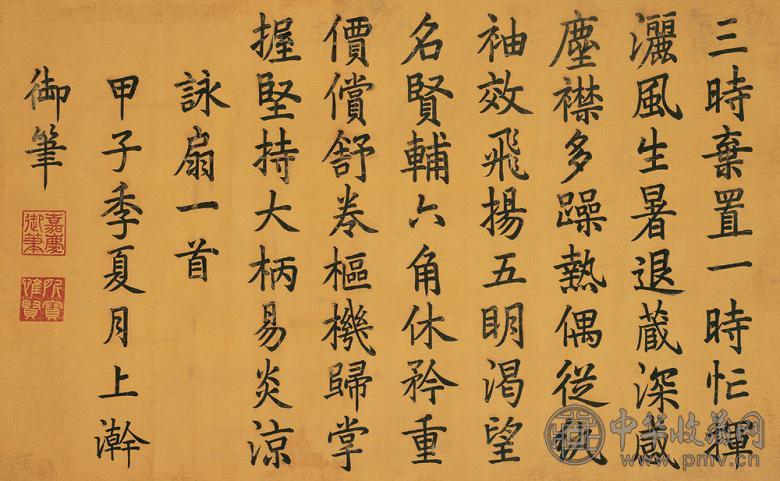 三時棄置一時忙揮
灑風生暑退藏深感
塵襟多躁熱偶從
袖效飛揚五明渴望
名賢輔六角休矜重
價償舒卷樞機歸掌
握堅持大柄易炎涼
詠扇一首
甲子季夏月上澣
御筆
嘉慶御筆
所寶惟賢
中华收藏网
www.pmv.cn